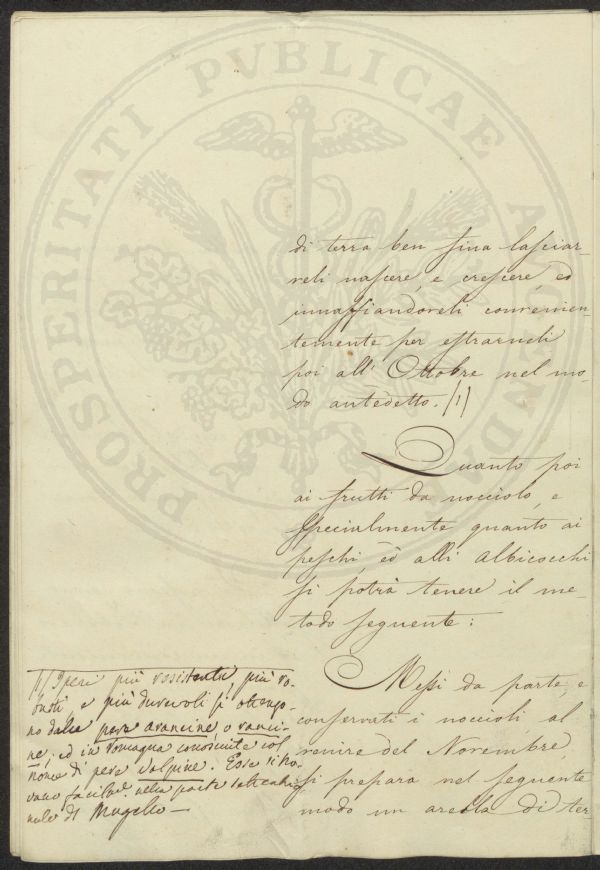 PROSPERITATI PVBLICAE AVGENDAE
di terra ben fina lasciar-
veli nascere, e crescere, ed
innaffiandoveli convenien-
temente per estrarveli
poi all' Ottobre nel mo-
do antedetto. (1)
Quanto poi
ai frutti da nocciolo, e
specialmente quanto ai
peschi, ed alli Albicocchi
si potrà tenere il me-
todo seguente:
Messi da parte, e
conservati i noccioli, al
venire del Novembre,
si prepara nel seguente
modo un areola di ter-
(1) I peri più resistenti, più ro-
busti, e più durevoli si ottengo-
no dalle pere arancine, o ranci-
ne; ed in Romagna conosciute col
nome di pere volpine. Esse si tro-
vano facilmente nella parte settentrio-
nale di Mugello —